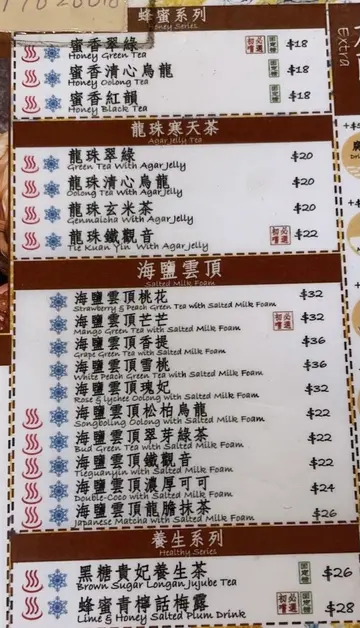 蜂蜜系列
Honey Series
蜜香翠綠 初嚐必選 固定糖 $18
Honey Green Tea
蜜香清心烏龍 固定糖 $18
Honey Oolong Tea
蜜香紅韻 固定糖 $18
Honey Black Tea
龍珠寒天茶
Agar Jelly Tea
龍珠翠綠 $20
Green Tea With Agar Jelly
龍珠清心烏龍 $20
Oolong Tea With Agar Jelly
龍珠玄米茶 $20
Genmaicha With Agar Jelly
龍珠鐵觀音 初嚐必選 $22
Tie Kuan Yin With Agar Jelly
海鹽雲頂
Salted Milk Foam
海鹽雲頂桃花 $32
Strawberry & Peach Green Tea with Salted Milk Foam
海鹽雲頂芒芒 初嚐必選 $32
Mango Green Tea with Salted Milk Foam
海鹽雲頂香提 $36
Grape Green Tea with Salted Milk Foam
海鹽雲頂雪桃 $36
White Peach Green Tea with Salted Milk Foam
海鹽雲頂瑰妃 $32
Rose & lychee Oolong with Salted Milk Foam
海鹽雲頂松柏烏龍 $22
Songboling Oolong with Salted Milk Foam
海鹽雲頂翠芽綠茶 $22
Bud Green Tea with Salted Milk Foam
海鹽雲頂鐵觀音 $22
Tieguanyin with Salted Milk Foam
海鹽雲頂濃厚可可 $24
Double-Coco with Salted Milk Foam
海鹽雲頂龍膽抹茶 $26
Japanese Matcha with Salted Milk Foam
養生系列
Healthy Series
黑糖貴妃養生茶 固定糖 $26
Brown Sugar Longan Jujube Tea
蜂蜜青檸話梅露 初嚐必選 固定糖 $28
Lime & Honey Salted Plum Drink
Extra